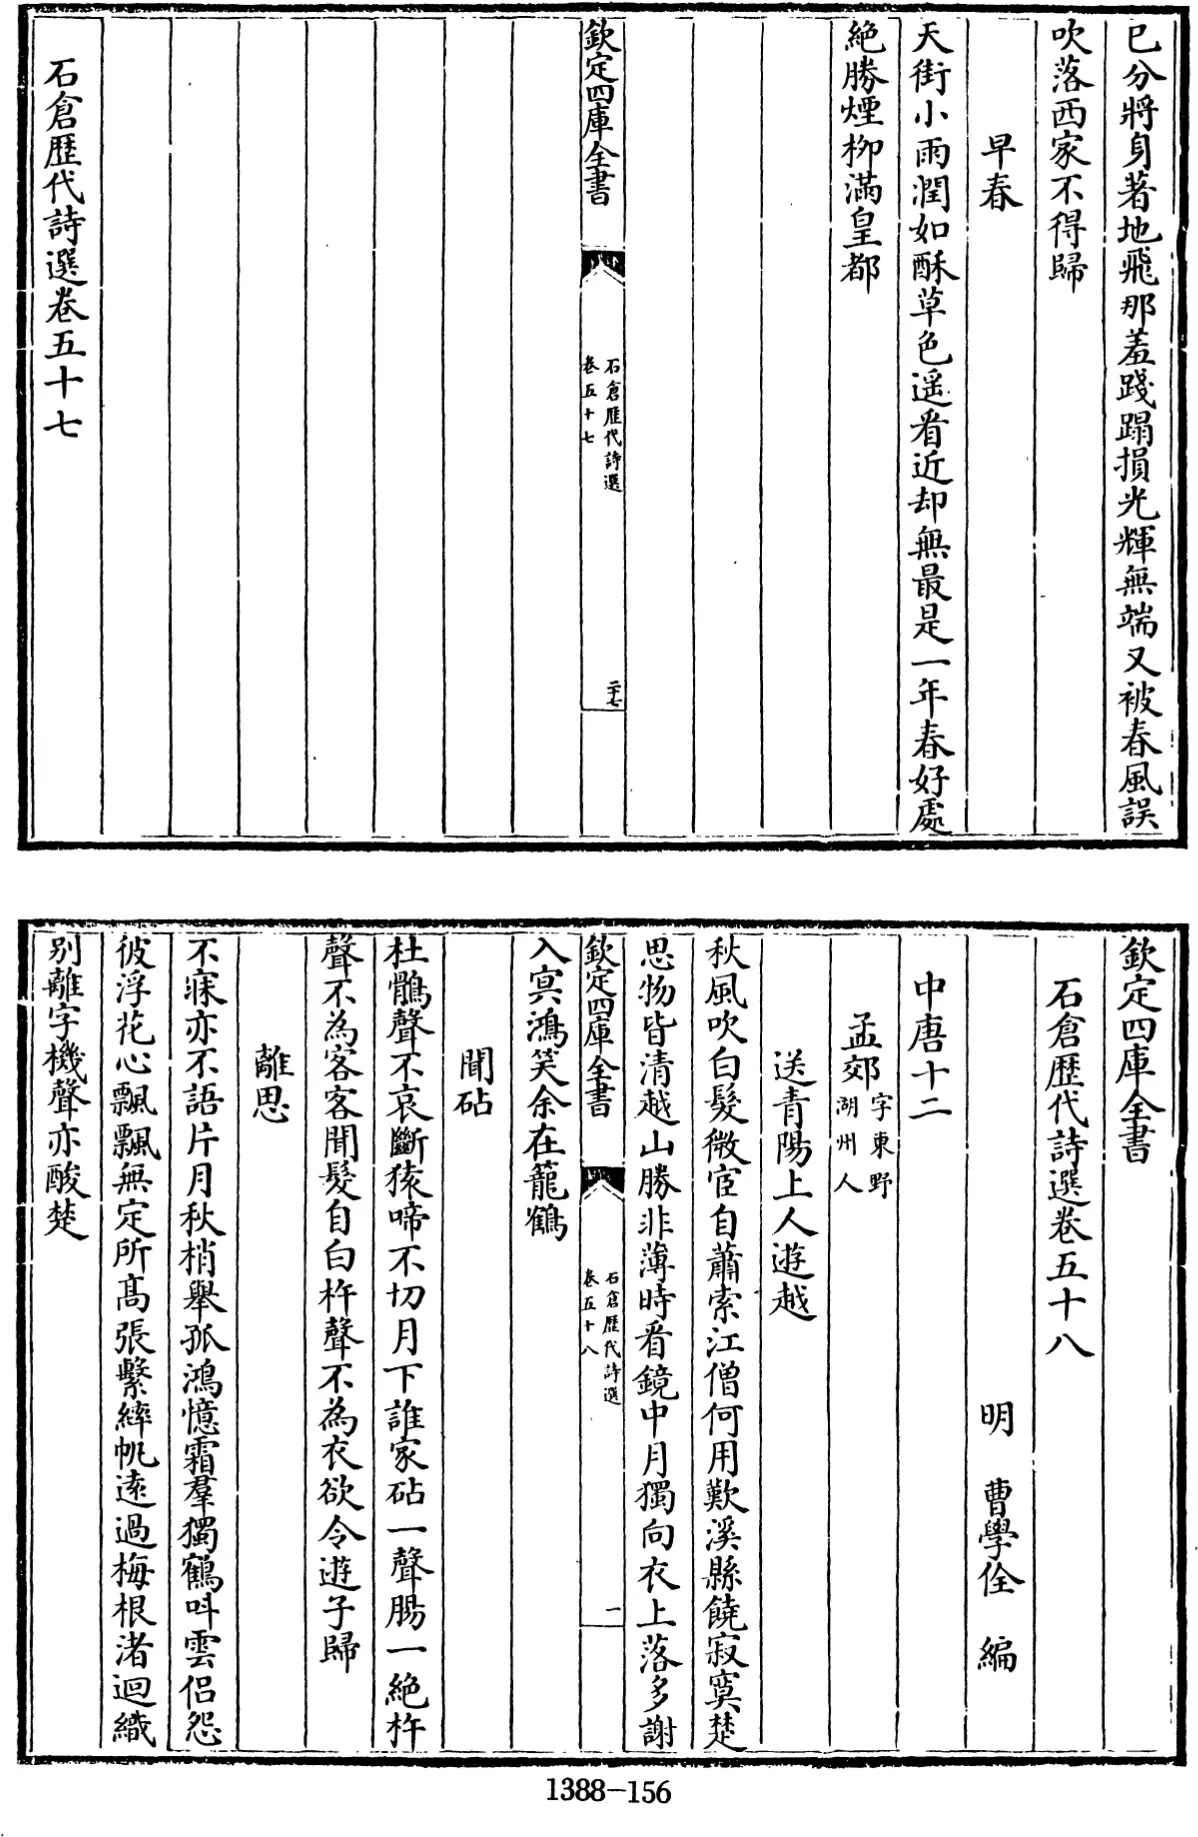 已分將身著地飛那羞踐蹋損光輝無端又被春風誤
吹落西家不得歸
早春
天街小雨潤如酥草色遥看近却無最是一年春好處
絶勝煙栁滿皇都
欽定四庫全書
石倉歴代詩選
卷五十七
二十七
石倉歴代詩選卷五十七
欽定四庫全書
石倉歴代詩選卷五十八
明 曹學佺 編
中唐十二
孟郊
字東野
湖州人
送青陽上人遊越
秋風吹白髮微宦自蕭索江僧何用歎溪縣饒寂寞楚
思物皆清越山勝非薄時看鏡中月獨向衣上落多謝
欽定四庫全書
石倉歴代詩選
卷五十八
一
入㝠鴻笑余在籠鶴
聞砧
杜鵑聲不哀斷猿啼不切月下誰家砧一聲腸一絶杵
聲不為客客聞髮自白杵聲不為衣欲令遊子歸
離思
不寐亦不語片月秋梢舉孤鴻憶霜羣獨鶴呌雲侣怨
彼浮花心飄飄無定所髙張繫繂帆逺過梅根渚迴織
别離字機聲亦酸楚
1388-156